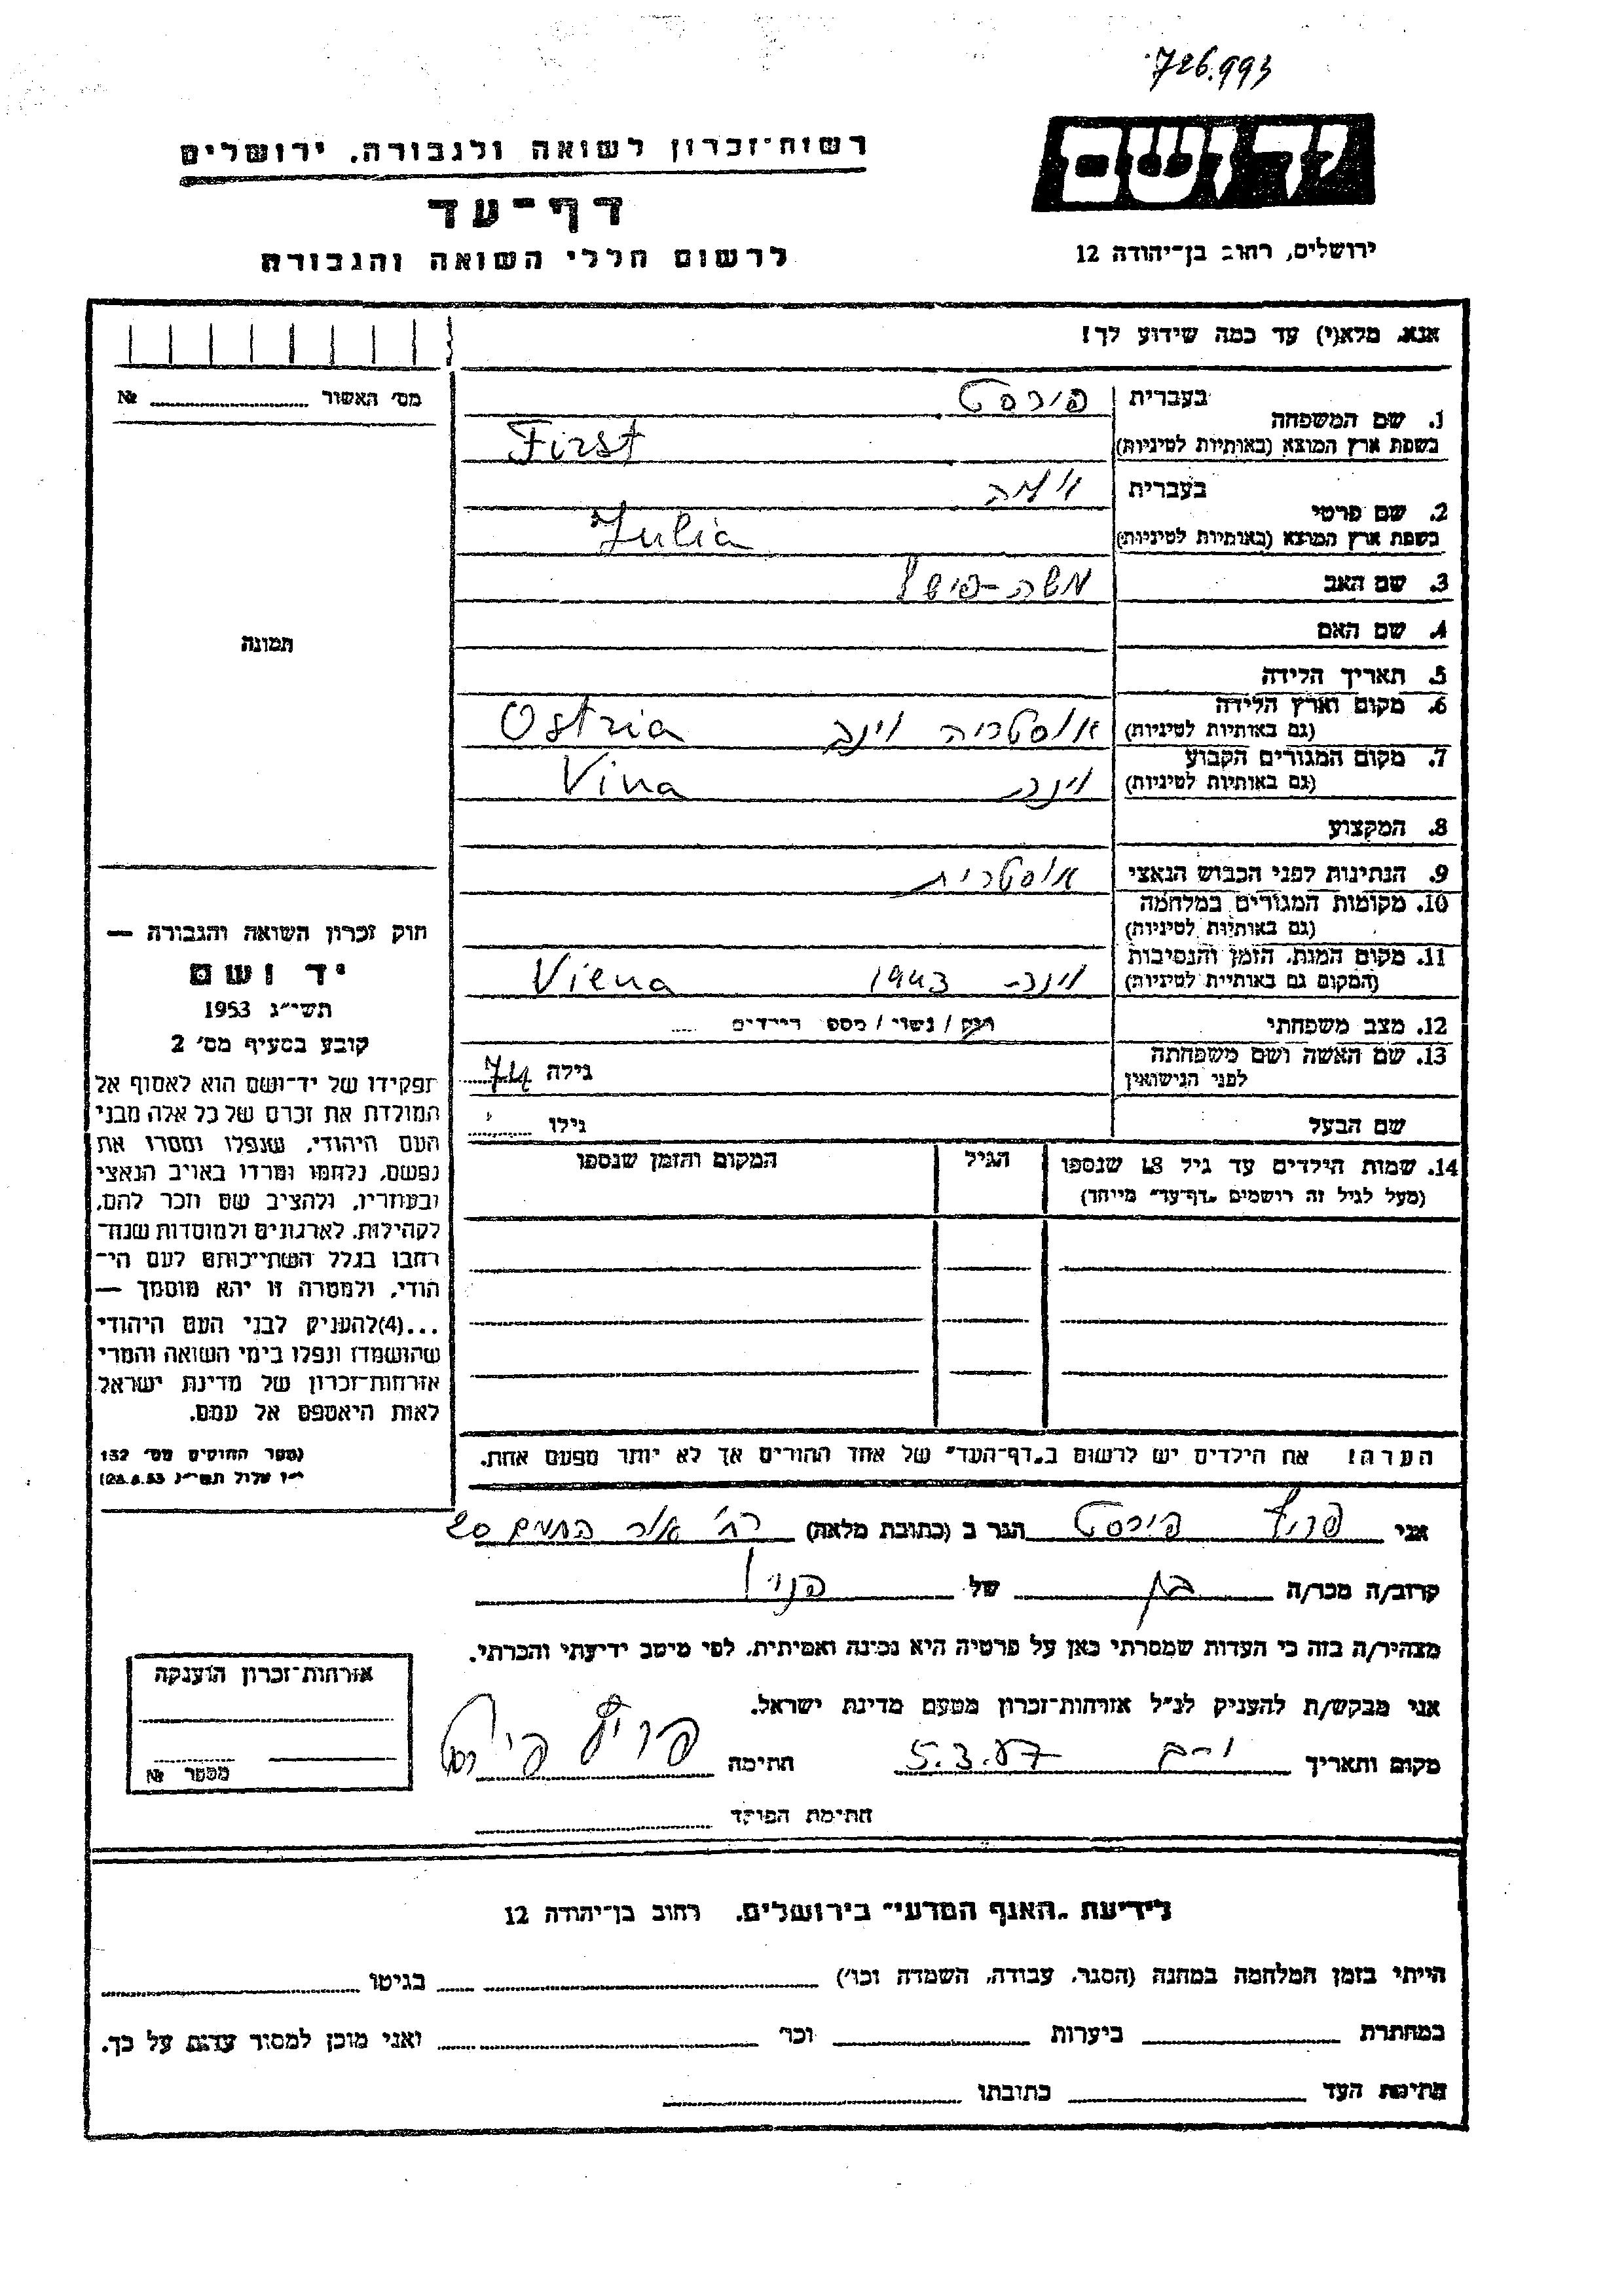 726.993
יד ושם
רשות־זכרון לשואה ולגבורה, ירושלים
דף־עד
ירושלים, רחוב בן־יהודה 12
לרשום חללי השואה והגבורה
אנא, מלא(י) עד כמה שידוע לך!
מס' האשור № 
1. שם המשפחה
בעברית פירסט
בשפת ארץ המוצא (באותיות לטיניות) First
2. שם פרטי
בעברית
בשפת ארץ המוצא (באותיות לטיניות) Julia
3. שם האב משה-פישל
4. שם האם
תמונה
5. תאריך הלידה
6. מקום וארץ הלידה
(גם באותיות לטיניות) אוסטריה וינה Ostria
7. מקום המגורים הקבוע
(גם באותיות לטיניות) וינה Vina
8. המקצוע
9. הנתינות לפני הכבוש הנאצי אוסטרית
10. מקומות המגורים במלחמה
(גם באותיות לטיניות)
11. מקום המות, הזמן והנסיבות
(המקום גם באותיות לטיניות) וינה 1943 Viena
12. מצב משפחתי רוק / נשוי / מספר הילדים
13. שם האשה ושם משפחתה
לפני הנישואין גילה 74
שם הבעל גילו
14. שמות הילדים עד גיל 18 שנספו הגיל המקום והזמן שנספו
(מעל לגיל זה רושמים „דף־עד" מיוחד)
חוק זכרון השואה והגבורה —
יד ושם
תשי"ג 1953
קובע בסעיף מס' 2
תפקידו של יד־ושם הוא לאסוף אל
המולדת את זכרם של כל אלה מבני
העם היהודי, שנפלו ומסרו את
נפשם, נלחמו ומרדו באויב הנאצי
ובעוזריו, ולהציב שם וזכר להם,
לקהילות, לארגונים ולמוסדות שנח־
רבו בגלל השתייכותם לעם הי־
הודי, ולמטרה זו יהא מוסמך —
...(4)להעניק לבני העם היהודי
שהושמדו ונפלו בימי השואה והמרי
אזרחות־זכרון של מדינת ישראל
לאות היאספם אל עמם.
(ספר החוקים מס' 132
י"ז אלול תשי"ג 28.8.53)
הערה! את הילדים יש לרשום ב„דף־העד" של אחד ההורים אך לא יותר מפעם אחת.
אני פריץ פירסט הגר ב (כתובת מלאה) רח' 20
קרוב/ה מכר/ה בן של הנ"ל
מצהיר/ה בזה כי העדות שמסרתי כאן על פרטיה היא נכונה ואמיתית, לפי מיטב ידיעתי והכרתי.
אני מבקש/ת להעניק לנ"ל אזרחות־זכרון מטעם מדינת ישראל.
מקום ותאריך 5.3.87 חתימה פריץ פירסט
חתימת הפוקד
אזרחות־זכרון הוענקה
מספר №
לידיעת „האגף המדעי" בירושלים, רחוב בן־יהודה 12
הייתי בזמן המלחמה במחנה (הסגר, עבודה, השמדה וכו') בגיטו
במחתרת ביערות וכו' ואני מוכן למסור עדות על כך.
חתימת העד כתובתו